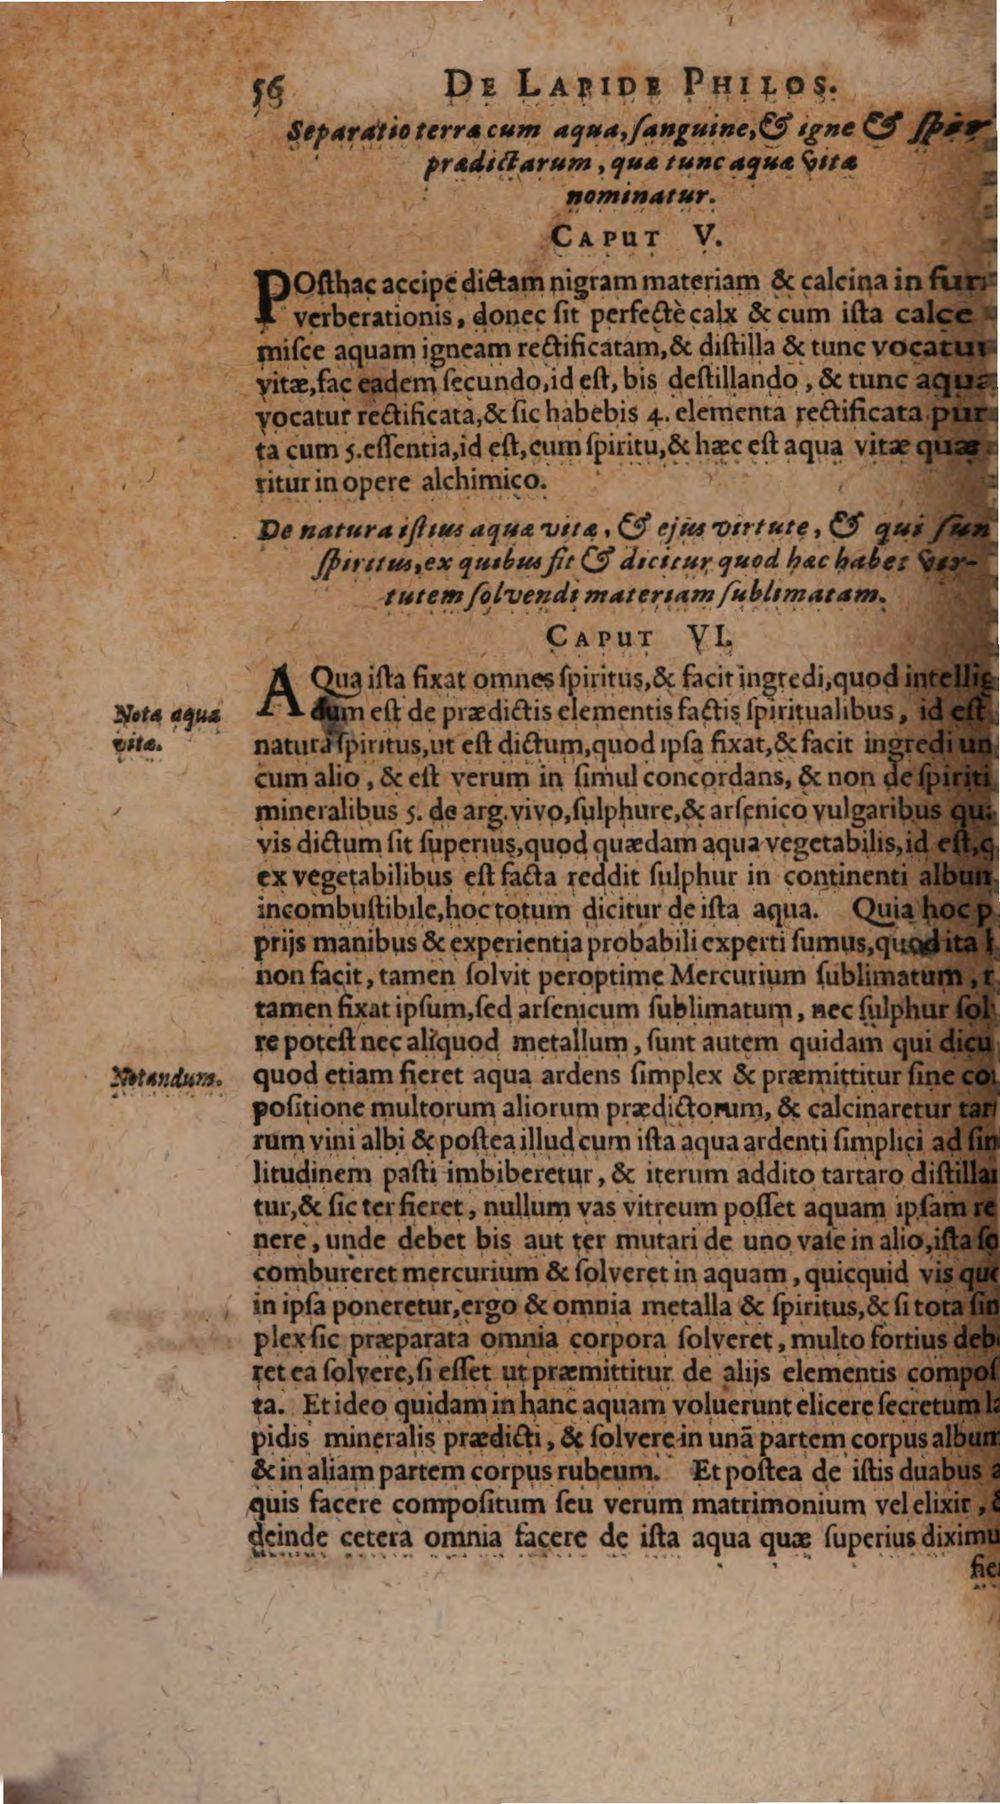 56 DE LAPIDE PHILOS.
Separatio terræ cum aqua, ſanguine, & igne &
prædictarum, quæ tunc aqua vitæ
nominatur.
CAPUT V.
POſthac accipe dictam nigram materiam & calcina in
verberationis, donec ſit perfectè calx & cum iſta calce
miſce aquam igneam rectificatam, & diſtilla & tunc vocatur
vitæ, fac eadem ſecundo, id eſt, bis deſtillando, & tunc aqua
vocatur rectificata, & ſic habebis 4. elementa rectificata pur
ta cum 5. eſſentia, id eſt, cum ſpiritu, & hæc eſt aqua vitæ quæ
ritur in opere alchimico.
De natura iſtius aquæ vitæ, & ejus virtute, & qui ſun
ſpiritus, ex quibus fit & dicitur quod hæc habet vir-
tutem ſolvendi materiam ſublimatam.
CAPUT VI.
AQua iſta fixat omnes ſpiritus, & facit ingredi, quod intellig
dum eſt de prædictis elementis factis ſpiritualibus, id eſt
Nota aqua
vitæ.
natura ſpiritus, ut eſt dictum, quod ipſa fixat, & facit ingredi un
cum alio, & eſt verum in ſimul concordans, & non de ſpiriti
mineralibus 5. de arg. vivo, ſulphure, & arſenico vulgaribus
vis dictum ſit ſuperius, quod quædam aqua vegetabilis, id eſt, q
ex vegetabilibus eſt facta reddit ſulphur in continenti album
incombuſtibile, hoc totum dicitur de iſta aqua. Quia hoc p
prijs manibus & experientia probabili experti ſumus, quod ita
non facit, tamen ſolvit peroptime Mercurium ſublimatum,
tamen fixat ipſum, ſed arſenicum ſublimatum, nec ſulphur ſol
re poteſt nec aliquod metallum, ſunt autem quidam qui dicu
Notandum.
quod etiam fieret aqua ardens ſimplex & præmittitur ſine co
poſitione multorum aliorum prædictorum, & calcinaretur tar
rum vini albi & poſtea illud cum iſta aqua ardenti ſimplici ad ſin
litudinem paſti imbiberetur, & iterum addito tartaro diſtilla
tur, & ſic ter fieret, nullum vas vitreum poſſet aquam ipſam re
nere, unde debet bis aut ter mutari de uno vaſe in alio, iſta ſo
combureret mercurium & ſolveret in aquam, quicquid vis que
in ipſa poneretur, ergo & omnia metalla & ſpiritus, & ſi tota ſin
plex ſic præparata omnia corpora ſolveret, multo fortius deb
ret ea ſolvere, ſi eſſet ut præmittitur de alijs elementis compoſ
ta. Et ideo quidam in hanc aquam voluerunt elicere ſecretum l
pidis mineralis prædicti, & ſolvere in unã partem corpus album
& in aliam partem corpus rubeum. Et poſtea de iſtis duabus a
quis facere compoſitum ſeu verum matrimonium vel elixir,
deinde cetera omnia facere de iſta aqua quæ ſuperius diximu
fie